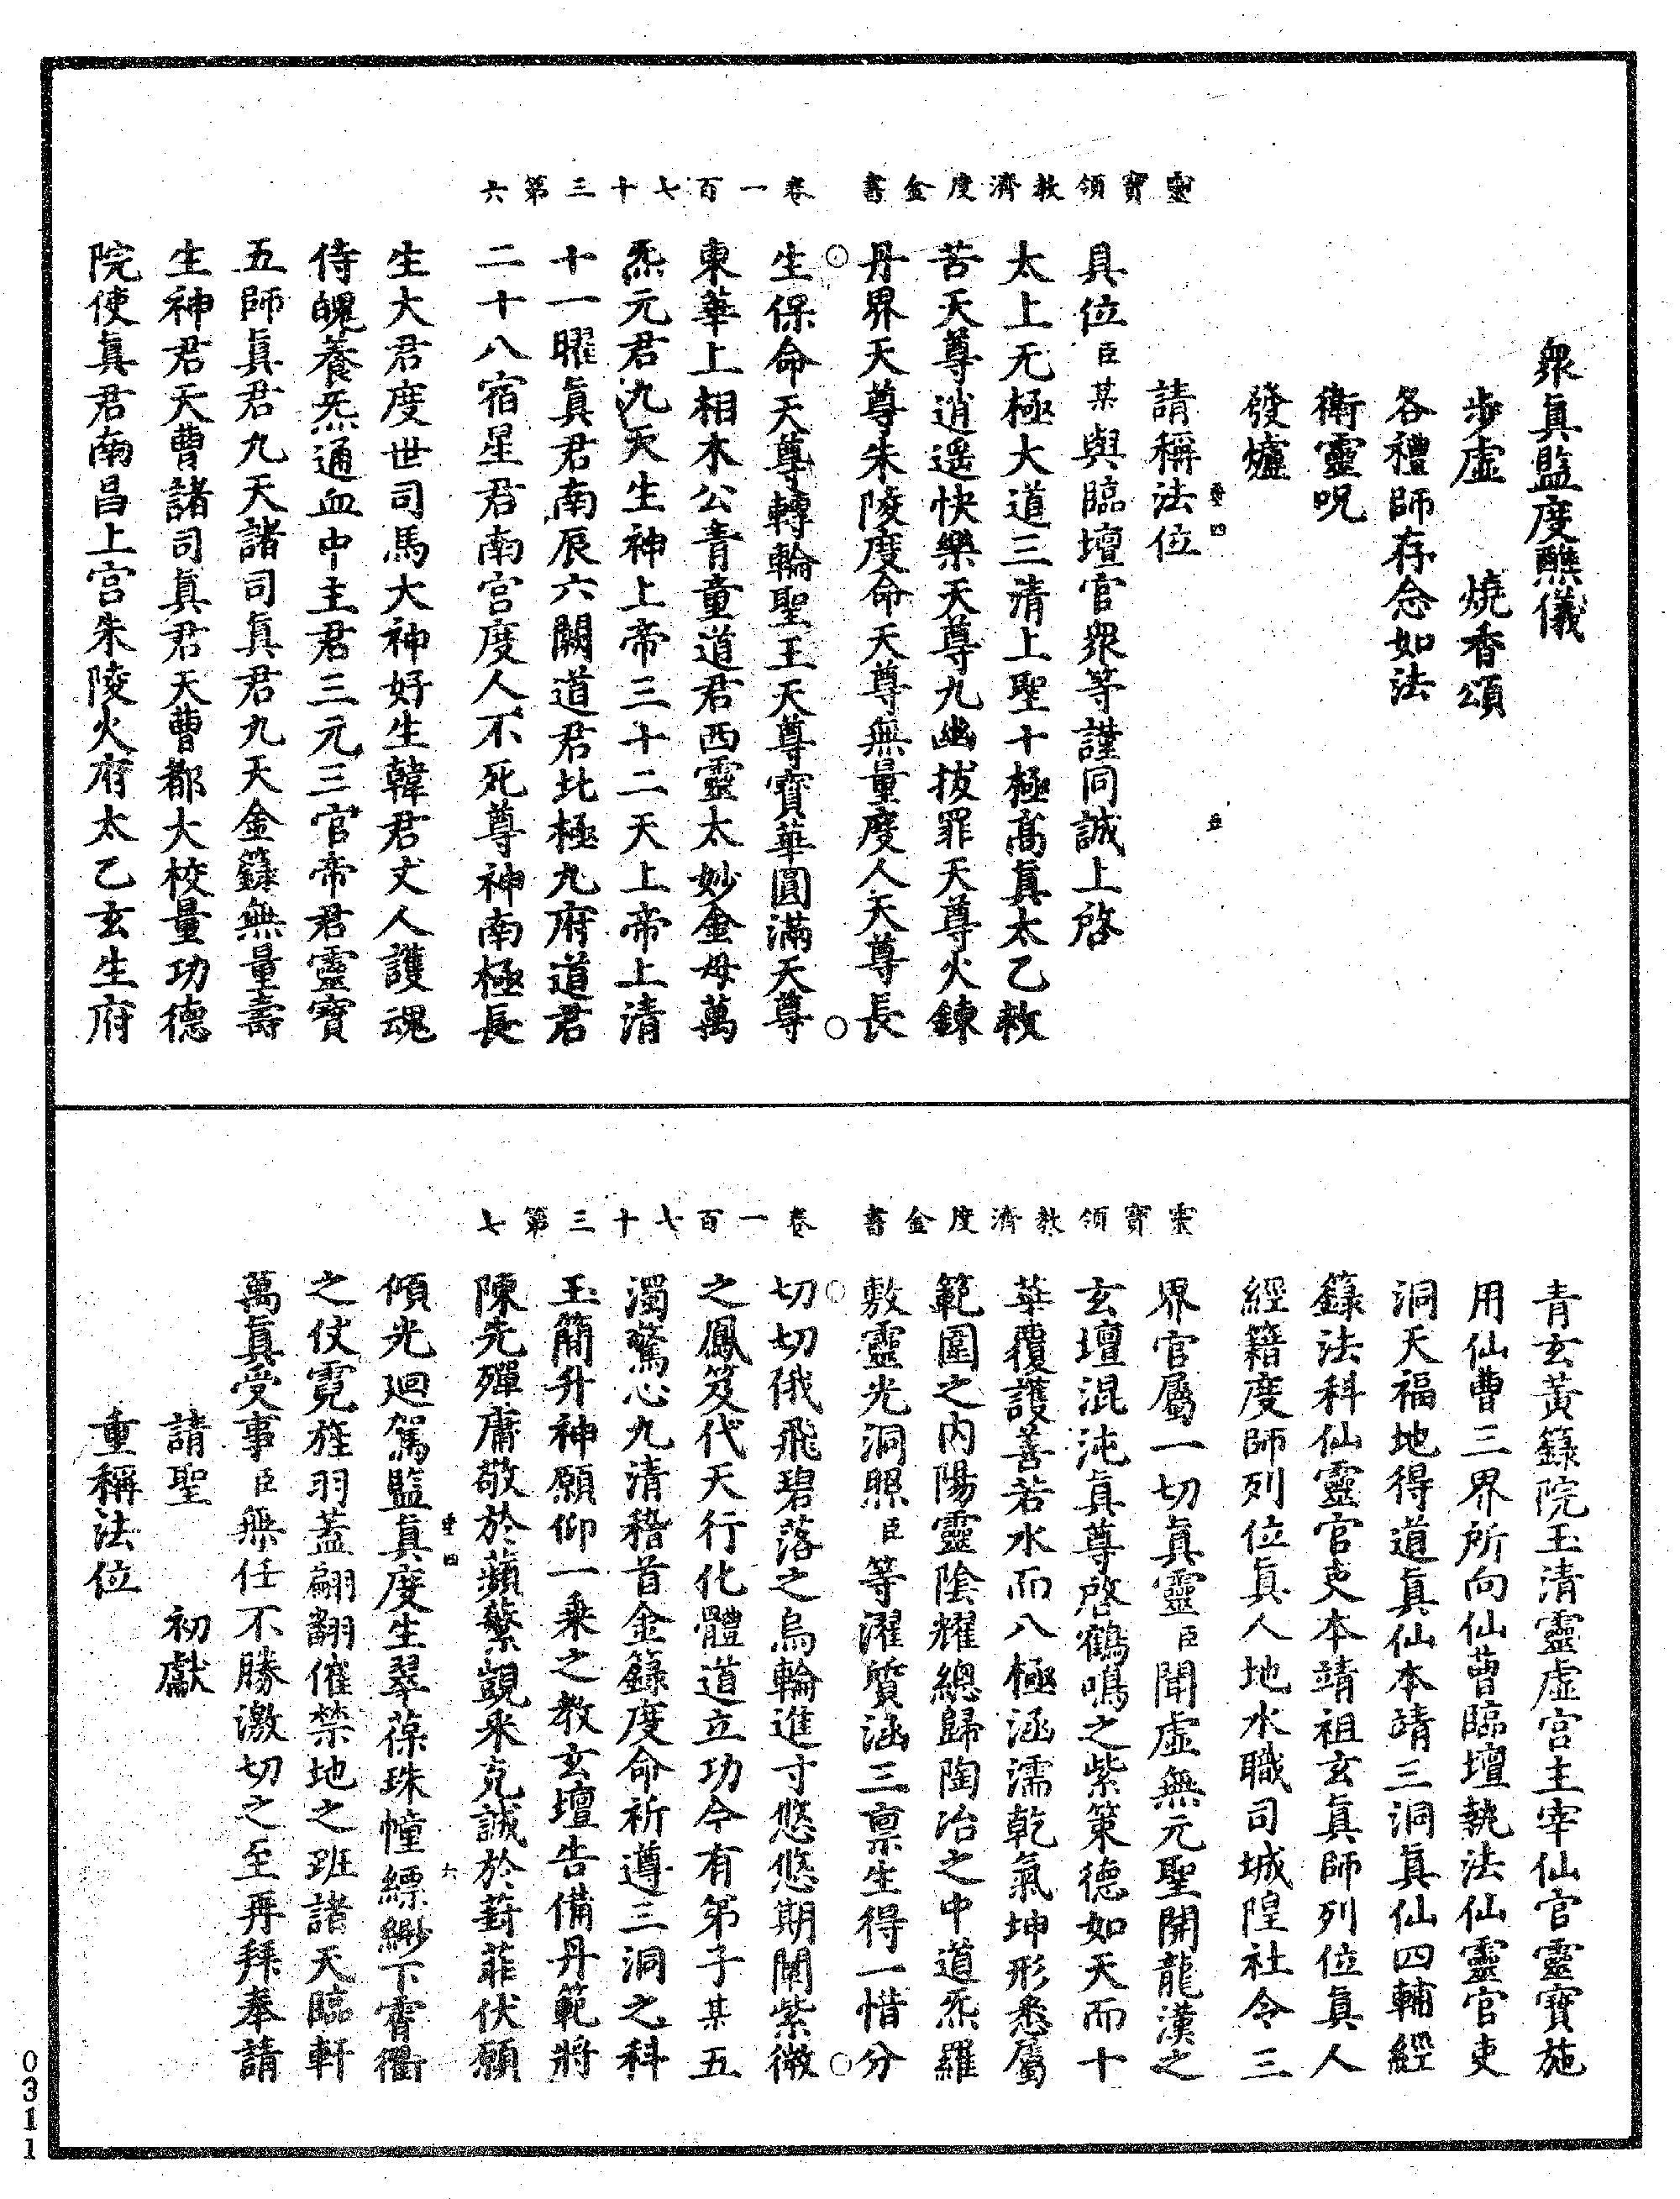 靈寶領教濟度金書 卷一百七十三第六
眾真監度醮儀
步虛 燒香頌
各禮師存念如法
衛靈呪
發爐
請稱法位
具位臣某與臨壇官眾等謹同誠上啓
太上无極大道三清上聖十極高真太乙救
苦天尊逍遥快樂天尊九幽拔罪天尊火鍊
丹界天尊朱陵度命天尊無量度人天尊長
生保命天尊轉輪聖王天尊寶華圓滿天尊
東華上相木公青童道君西靈太妙金母萬
炁元君九天生神上帝三十二天上帝上清
十一曜真君南辰六闕道君北極九府道君
二十八宿星君南宮度人不死尊神南極長
生大君度世司馬大神好生韓君丈人護魂
侍魄養炁通血中主君三元三官帝君靈寶
五師真君九天諸司真君九天金籙無量壽
生神君天曹諸司真君天曹都大校量功德
院使真君南昌上宮朱陵火府太乙玄生府
靈寶領教濟度金書 卷一百七十三第七
青玄黃籙院玉清靈虛宮主宰仙官靈寶施
用仙曹三界所向仙曹臨壇執法仙靈官吏
洞天福地得道真仙本靖三洞真仙四輔經
籙法科仙靈官吏本靖祖玄真師列位真人
經籍度師列位真人地水職司城隍社令三
界官屬一切真靈臣聞虛無元聖開龍漢之
玄壇混沌真尊啓鶴鳴之紫策德如天而十
華覆護善若水而八極涵濡乾氣坤形悉屬
範圍之內陽靈陰耀總歸陶冶之中道炁羅
敷靈光洞照臣等濯質涵三稟生得一惜分
切切俄飛碧落之烏輪進寸悠悠期閘紫微
之鳳笈代天行化體道立功今有弟子某五
濁驚心九清稽首金籙度命祈遵三洞之科
玉簡升神願仰一乘之教玄壇告備丹範將
陳先殫庸敬於蘋蘩覬采克誠於葑菲伏願
傾光迴駕監真度生翠葆珠幢縹緲下霄衢
之仗霓旌羽蓋翩翻催禁地之班諸天臨軒
萬真受事臣無任不勝激切之至再拜奉請
請聖 初獻
重稱法位
0311